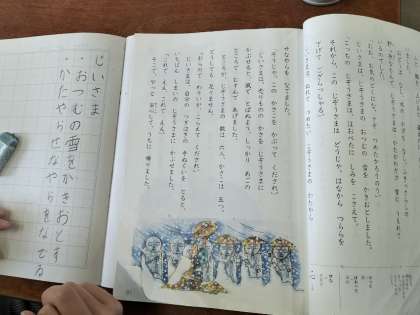 じいさま
・おつむの雪をかきおとす
・かたやらせなやらをなでる
せなやらを なでました。
「そうじゃ。この かさこを かぶって くだされ。」
じいさまは、売りものの かさを じぞうさまに
かぶせると、風で とばぬよう、しっかり あごの
ところで むすんで あげました。
ところが、じぞうさまの 数は 六人、かさこは 五つ。
どうしても 足りません。
「おらので わりいが、こらえて くだされ。」
じいさまは、自分の つぎはぎの 手ぬぐいを とると、
いちばん しまいの じぞうさまに かぶせました。
「これで ええ、これで ええ。」
そこで、やっと 安心して、うちに 帰りました。
じいさまは、じぞうさまの おつむの 雪を かきおとしました。
「こっちの じぞうさまは、ほおべたに しみを こさえて。
それから、この じぞうさまは どうじゃ。はなから つららを
さげて ござらっしゃる。」